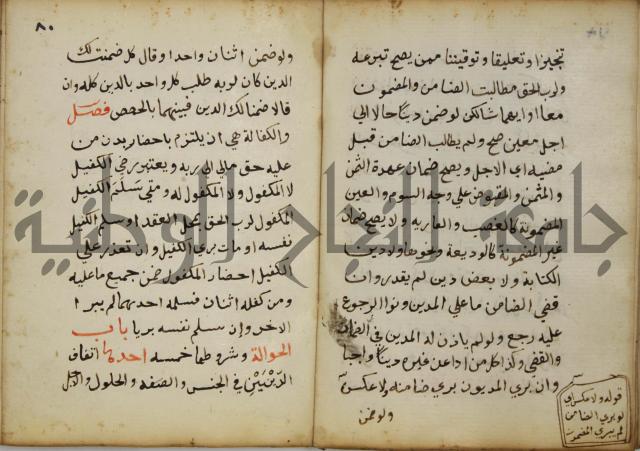 تنجيزا وتعليقا وتوقيتا ممن يصح تبرعه
ولرب الحق مطالبت الضامن والمضمون
معا او ايهما شا لكن لو ضمن دينا حالا الي
اجل معين صح ولم يطالب الضامن قبل
مضيه اي الاجل ويصح ضمان عهدة الثمن
والمثمن والمقبوض علي وجه السوم والعين
المضمونة كالغصب والعاريه ولا يصح ضمان
غير المضمونة كالوديعة ونحوها ولا دين
الكتابة ولا بعض دين لم يقدر وان
قضي الضامن ما علي المدين ونوا الرجوع
عليه رجع ولو لم ياذن له المدين في الضمان
والقضي وكذا كل من ادا عن غيره دينا واجبا
وان بري المديون بري ضامنه ولا عكس
ولو ضمن
قوله ولا عكس اي
لو بري الضامن
لم يبري المضمون
٨٠
ولو ضمن اثنان واحدا وقال كل ضمنت لك
الدين كان لربه طلب كل واحد بالدين كله وان
قالا ضمنا لك الدين فبينهما بالحصص فصل
والكفالة هي ان يلتزم باحضار بدن من
عليه حق مالي الي ربه ويعتبر رضي الكفيل
لا المكفول ولا المكفول له ومتي سلم الكفيل
المكفول لرب الحق بمحل العقد او سلم الكفيل
نفسه او مات بري الكفيل وان تعذر علي
الكفيل احضار المكفول ضمن جميع ما عليه
ومن كفله اثنان فسلمه احدهما لم يبرا
الاخر وان سلم نفسه بريا باب
الحوالة وشروطها خمسه احدها اتفاق
الدينين في الجنس والصفه والحلول والاجل
جامعة النجاح الوطنية